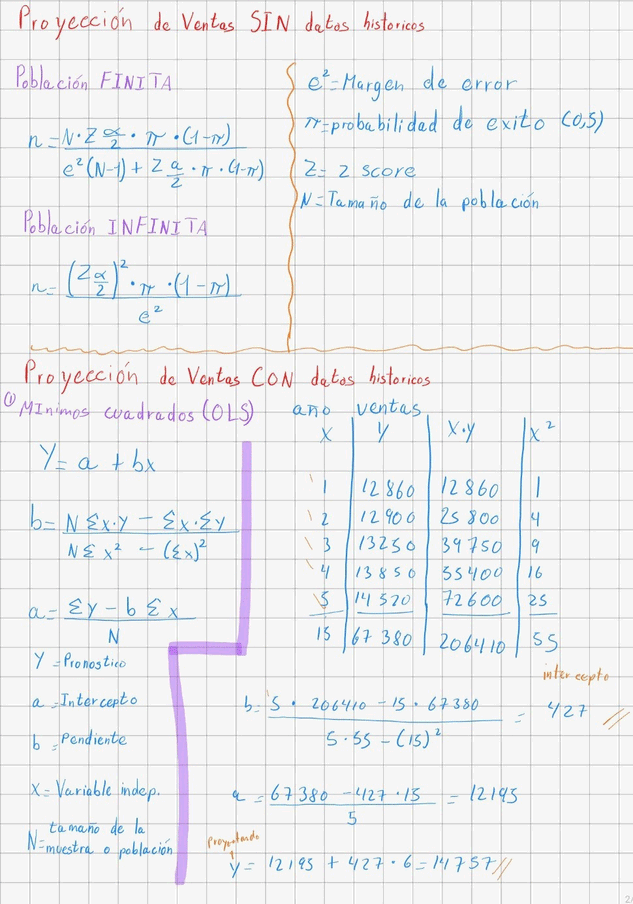 Proyección de Ventas SIN datos historicos
Población FINITA
n = N · Z α/2 · π · (1-π) / e²(N-1) + Z a/2 · π · (1-π)
Población INFINITA
n = (Z α/2)² · π · (1-π) / e²
e² = Margen de error
π = probabilidad de exito (0,5)
Z = z score
N = Tamaño de la población
Proyección de Ventas CON datos historicos
① Minimos cuadrados (OLS)
Y = a + bx
b = N Σx·y - Σx·Σy / NΣx² - (Σx)²
a = Σy - b Σx / N
Y = Pronostico
a = Intercepto
b = Pendiente
X = Variable indep.
N = tamaño de la
muestra o población
año ventas
X Y X·Y X²
1 12860 12860 1
2 12900 25800 4
3 13250 39750 9
4 13850 55400 16
5 14520 72600 25
15 67380 206410 55
intercepto
b = 5 · 206410 - 15 · 67380 / 5·55 - (15)² = 427 //
a = 67380 - 427 · 15 / 5 = 12195
Proyectando
y = 12195 + 427 · 6 = 14757 //